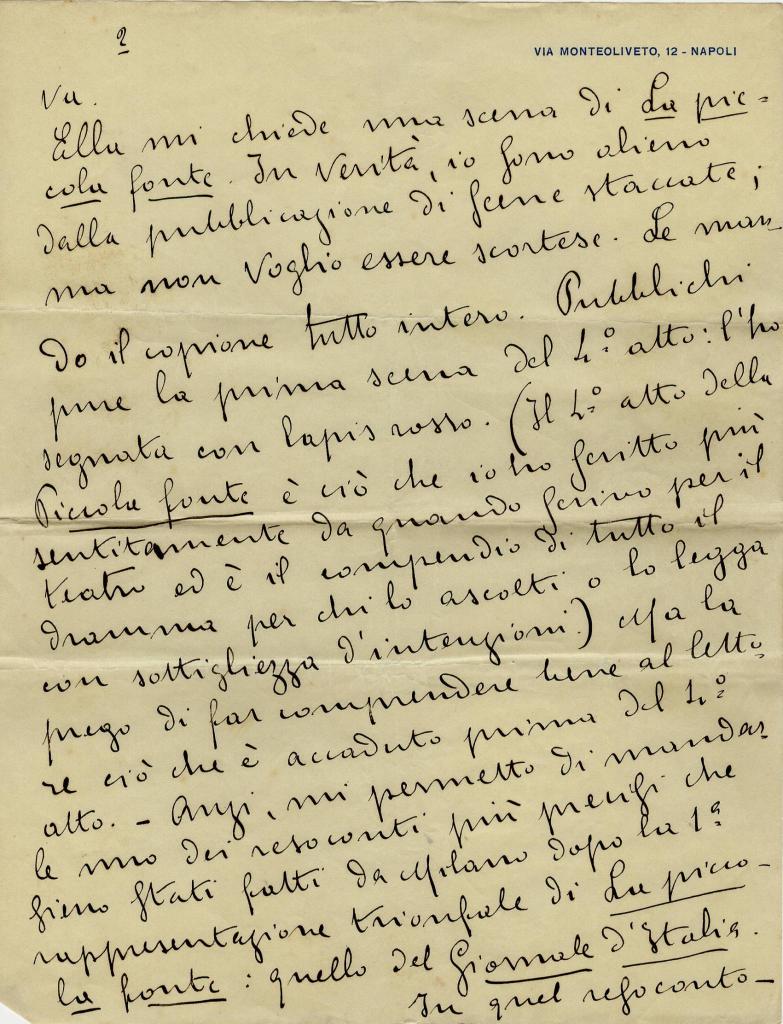 2
VIA MONTEOLIVETO, 12 - NAPOLI
va.
Ella mi chiede una scena di La pic-
cola fonte. In verità, io sono alieno
dalla pubblicazione di scene staccate;
ma non voglio essere scortese. Le man
do il copione tutto intero. Pubblichi
pure la prima scena del 4º atto: l'ho
segnata con lapis rosso. (Il 4º atto della
Piccola fonte è ciò che io ho scritto più
sentitamente da quando scrivo per il
teatro ed è il compendio di tutto il
dramma per chi lo ascolti o lo legga
con sottigliezza d'intenzioni.) Ma la
prego di far comprendere bene al letto-
re ciò che è accaduto prima del 4º
atto. - Anzi, mi permetto di mandar
le uno dei resoconti più precisi che
sieno stati fatti da Milano dopo la 1ª
rappresentazione trionfale di La picco-
la fonte: quello del Giornale d'Italia.
In quel resoconto-